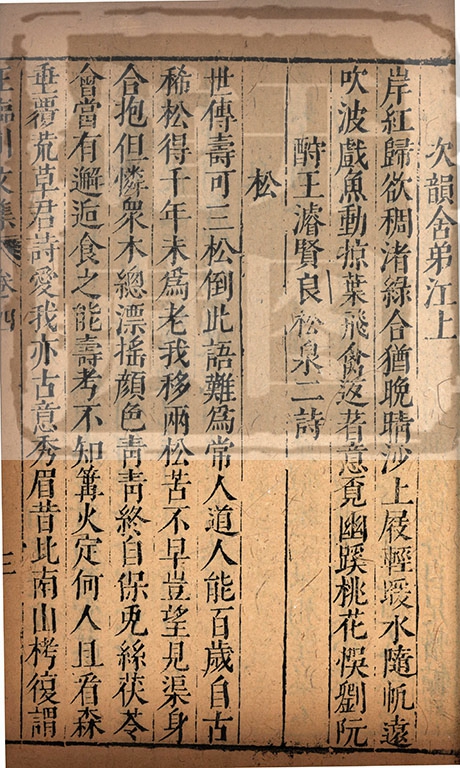 次韻舍弟江上
岸紅歸欲稠渚綠合猶晚晴沙上屐輕暖水隨帆遠
吹波戲魚動掠葉飛禽返著意覓幽蹊桃花悞劉阮
酧王濬賢良松泉二詩
松
世傳壽可三松倒此語難為常人道人能百歲自古
稀松得千年未為老我移兩松苦不早豈望見渠身
合抱但憐衆木總漂搖顏色青青終自保兎絲茯苓
會當有邂逅食之能壽考不知篝火定何人且看森
垂覆荒草君詩愛我亦古意秀眉昔比南山栲復謂
王臨川文集 卷四 三